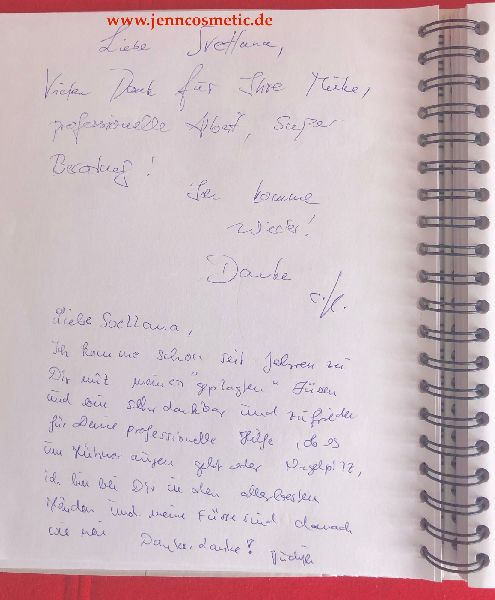 www.jenncosmetic.de
Liebe Svetlana,
Vielen Dank für Ihre Mühe,
professionelle Arbeit, super
Beratung!
Ich komme
wieder!
Danke
Liebe Svetlana,
Ich komme schon seit Jahren zu
Dir mit meinen "geplagten" Füßen
und bin sehr dankbar und zufrieden
für Deine professionelle Hilfe, ob es
um Hühneraugen geht oder Nagelpilz,
ich bin bei Dir in den allerbesten
Händen und meine Füsse sind danach
wie neu Danke, danke!